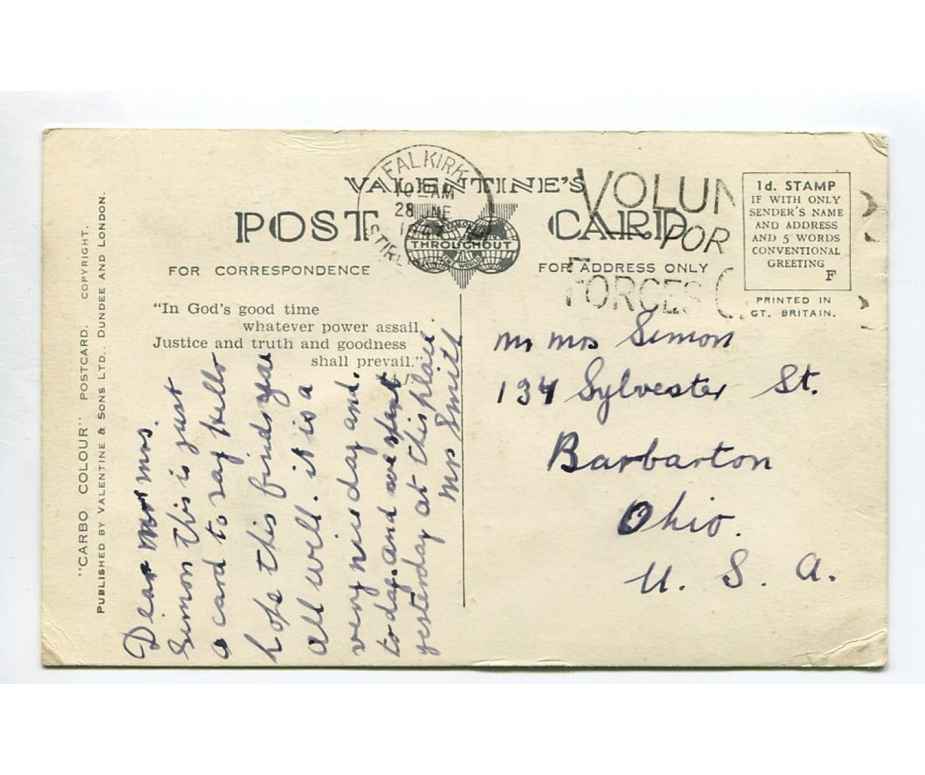 "CARBO COLOUR" POSTCARD. COPYRIGHT.
PUBLISHED BY VALENTINE & SONS LTD., DUNDEE AND LONDON.
VALENTINE'S
POST CARD
THROUGHOUT
FOR CORRESPONDENCE
FOR ADDRESS ONLY
FALKIRK
10 AM
28 JNE
VOLUN
FOR
FORCES
1d. STAMP
IF WITH ONLY
SENDER'S NAME
AND ADDRESS
AND 5 WORDS
CONVENTIONAL
GREETING
F
PRINTED IN
GT. BRITAIN.
"In God's good time
whatever power assail,
Justice and truth and goodness
shall prevail."
Dear Mr Mrs.
Simon this is just
a card to say Hello
hope this finds you
all well. it is a
very nice day and.
today. and we spent
yesterday at this place.
Mrs Smith
Mr Mrs Simon
134 Sylvester St.
Barbarton
Ohio.
U. S. A.